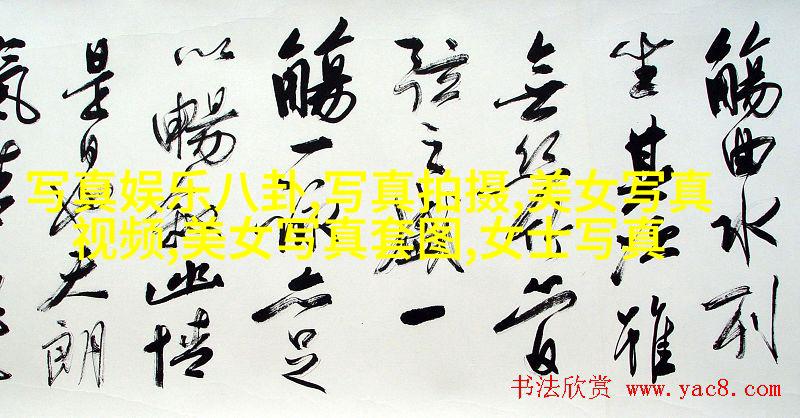 觴曲水列
坐其次雖
無絲竹管
弦之盛一
觴一詠亦足
以暢敘幽情
是日也天朗
氣清
写真娱乐八卦,写真拍摄,美女写真
视频,美女写真套图,女士写真
书法欣赏 www.yac8.com